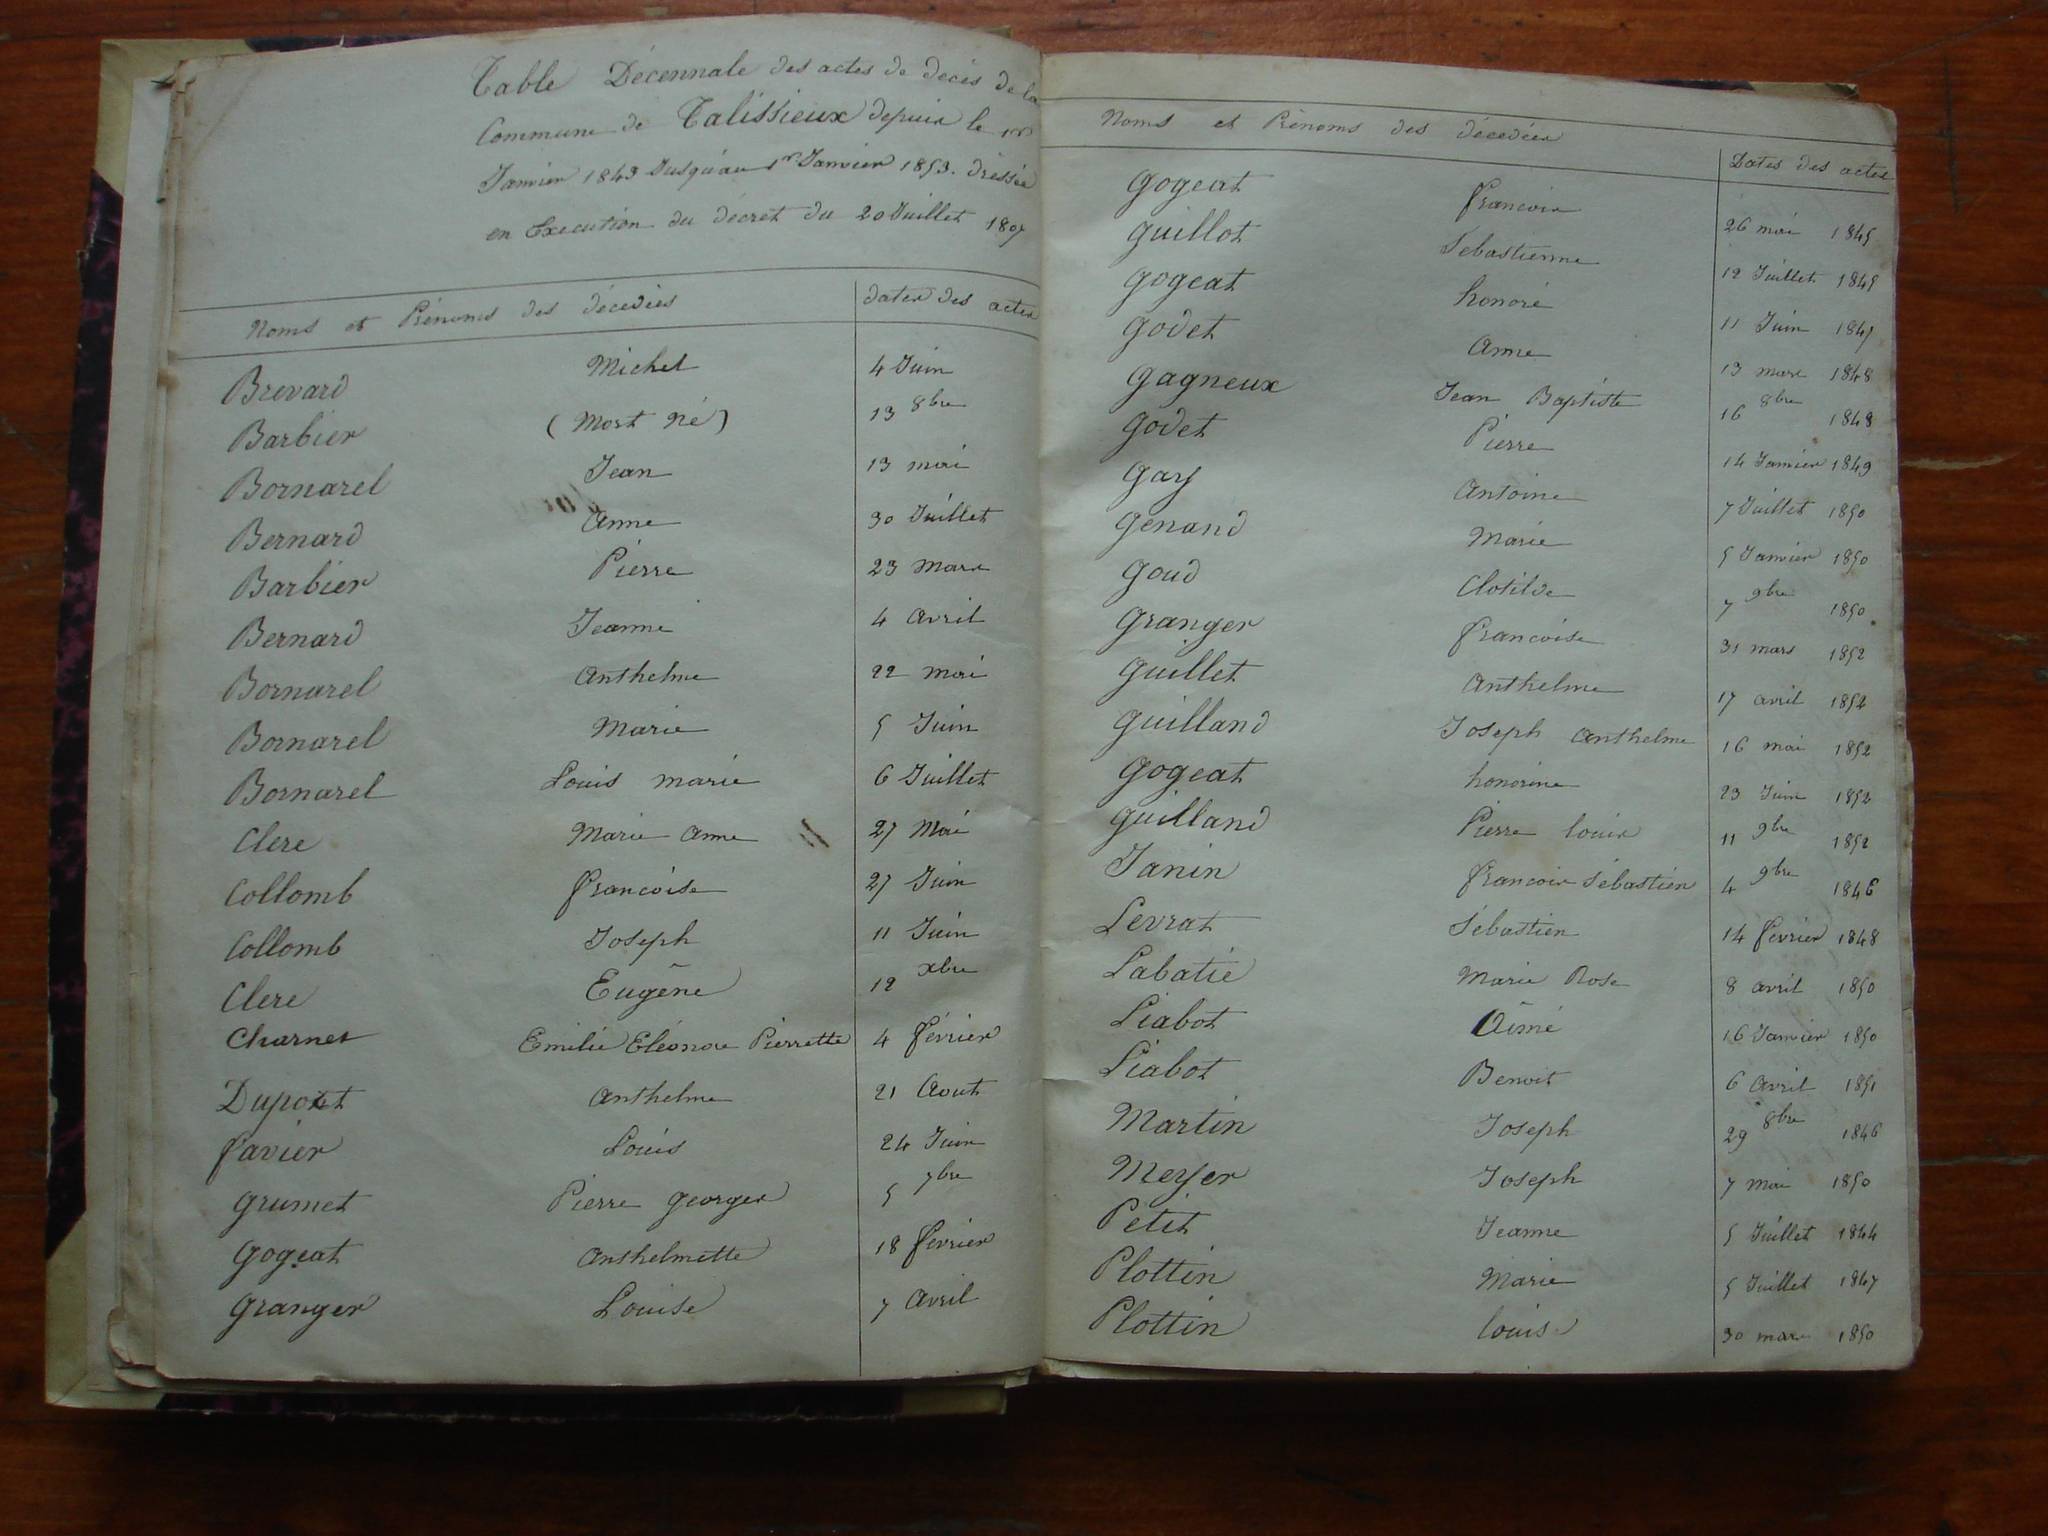 Table Décennale des actes de decès de la
Commune de Talissieux depuis le 1er
Janvier 1843 Jusqu'au 1er Janvier 1853. dressée
en Execution du décret du 20 Juillet 1807
Noms et Prénoms des décédées dates des actes
Brevard Michel 4 Juin
Barbier (Mort Né) 13 8bre
Bornarel Jean 13 mai
Bernard Anne 30 Juillet
Barbier Pierre 23 Mars
Bernard Jeanne 4 avril
Bornarel Anthelme 22 mai
Bornarel Marie 5 Juin
Bornarel Louis marie 6 Juillet
Clere Marie Anne 27 Mai
Collomb francoise 27 Juin
Collomb Joseph 11 Juin
Clere Eugêne 12 xbre
Charnet Emilie Eléonore Pierrette 4 février
Dupont Anthelme 21 Aout
favier Louis 24 Juin
grumet Pierre georges 5 7bre
gogeat Anthelmette 18 février
granger Louise 7 Avril
Noms et Prénoms des décedées Dates des actes
gogeat francois 26 mai 1845
guillot Sebastienne 12 Juillet 1845
gogeat honoré 11 Juin 1847
godet Anne 13 mars 1848
gagneux Jean Baptiste 16 8bre 1848
godet Pierre 14 Janvier 1849
gay Antoine 7 Juillet 1850
genand Marie 5 Janvier 1850
goud Clotilde 7 9bre 1850
granger francoise 31 mars 1852
guillet Anthelme 17 avril 1852
guilland Joseph Anthelme 16 mai 1852
gogeat honorine 23 Juin 1852
guilland Pierre louis 11 9bre 1852
Janin francois Sébastien 4 9bre 1846
Levrat Sébastien 14 février 1848
Labatie Marie Rose 8 avril 1850
Liabot Aimé 16 Janvier 1850
Liabot Benoit 6 Avril 1851
Martin Joseph 29 8bre 1846
Meyer Joseph 7 mai 1850
Petit Jeanne 5 Juillet 1844
Plottin Marie 5 Juillet 1847
Plottin louis 30 mars 1850